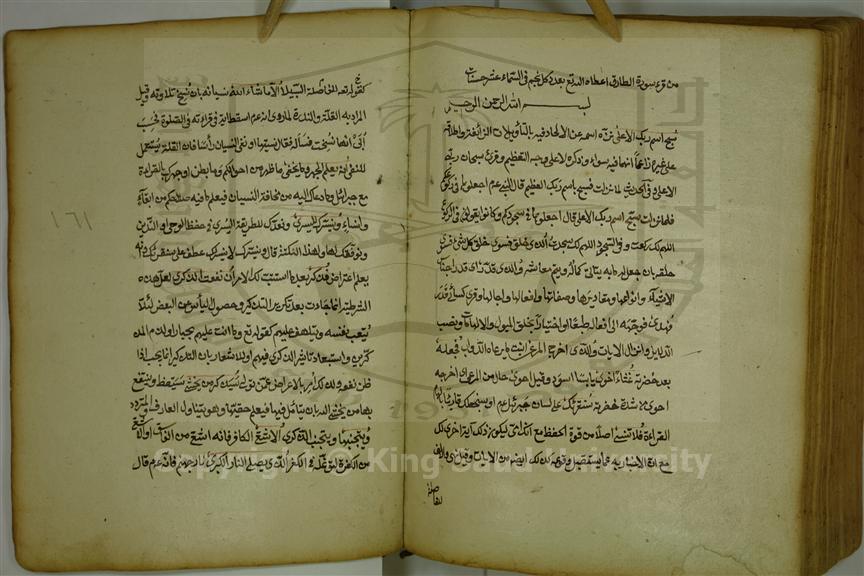 من قرء سورة الطارق اعطاه الله تع بعدد كل نجم في السماء عشر حسنات
بسم الله الرحمن الرحيم
سبح اسم ربك الاعلى نزه اسمه عن الالحاد فيه بالتأويلات الزائغة واطلاقه
على غيره زاعما انهما فيه سواء وذكره لا على وجه التعظيم وقرئ سبحان ربي
الاعلى وفي الحديث لما نزلت فسبح باسم ربك العظيم قال النبي عم اجعلوها في ركوعكم
فلما نزلت سبح اسم ربك الاعلى قال اجعلوها في سجودكم وكانوا يقولون في الركوع
اللهم لك ركعت وفي السجود اللهم لك سجدت الذي خلق فسوى خلق كل شئ فسوى
خلقه بان جعل له ما به يتأتى كماله ويتم معاشه والذي قدر اي قدر اجناس
الاشياء وانواعها ومقاديرها وصفاتها وافعالها واجالها وقرئ كسائي قدر
فهدى فوجهه الى افعاله طبعا واختيارا بخلق الميول والالهامات ونصب
الدلايل وانزال الايات والذي اخرج المرعى انبت ما يرعاه الدواب فجعله
بعد خضرته غثاء احوى يابسا اسود وقيل احوى حال من المرعى اي اخرجه
احوى من شدة خضرته سنقرئك على لسان جبرئيل عم او سنجعلك قارئا بالهام
القراءة فلا تنسى اصلا من قوة الحفظ مع انك امي ليكون ذلك آية اخرى لك
مع ان الاخبار به عما يستقبل ووقوعه كذلك ايضا من الايات وقيل نهي والالف
للفاصلة
كقوله تع
السبيلا الا ما شاء الله نسيانه بان نسخ تلاوته وقيل
المراد به القلة والندرة لما روي انه عم اسقط اية في قراءته في الصلوة فحسب
ابي انها نسخت فسأله فقال نسيتها او نفي النسيان رأسا فان القلة تستعمل
للنفي انه يعلم الجهر وما يخفى ما ظهر من احوالكم وما بطن او جهرك بالقراءة
مع جبرائل وما دعاك اليه من مخافة النسيان فيعلم ما فيه صلاحكم من ابقاء
وانساء ونيسرك لليسرى ونعدك للطريقة اليسرى في حفظ الوحي او التدين
ونوفقك لها ولهذا النكتة قال ونيسرك لا نيسر لك عطف على سنقرئك وانه
يعلم اعتراض فذكر بعد ما استتب لك الامر ان نفعت الذكرى لعل هذه
الشرطية انما جاءت بعد تكرير التذكير وحصول اليأس من البعض لئلا
يتعب نفسه ويتلهف عليهم كقوله تع وما انت عليهم بجبار او لذم المذ
كرين واستبعاد تأثير الذكرى فيهم او للاشعار بان التذكير انما يجب اذا
ظن نفعه ولذلك امر بالاعراض عمن تولى سيذكر من يخشى سيتعظ وينتفع
بها من يخشى الله بان يتأمل فيها فيعلم حقيتها وهو يتناول العارف والمتردد
ويتجنبها ويتجنب الذكرى الاشقى الكافر فانه اشقى من الفاسق او الاشقى
من الكفرة لتوغله في الكفر الذي يصلى النار الكبرى نار جهنم فانه عم قال
١٦١
Copyright © King Saud University